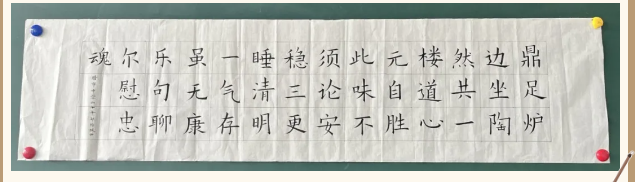 鼎足炉
边坐陶
然共一
楼道心
元自胜
此味不
须论安
稳三更
睡清明
一气存
虽无康
乐句聊
尔慰忠
魂